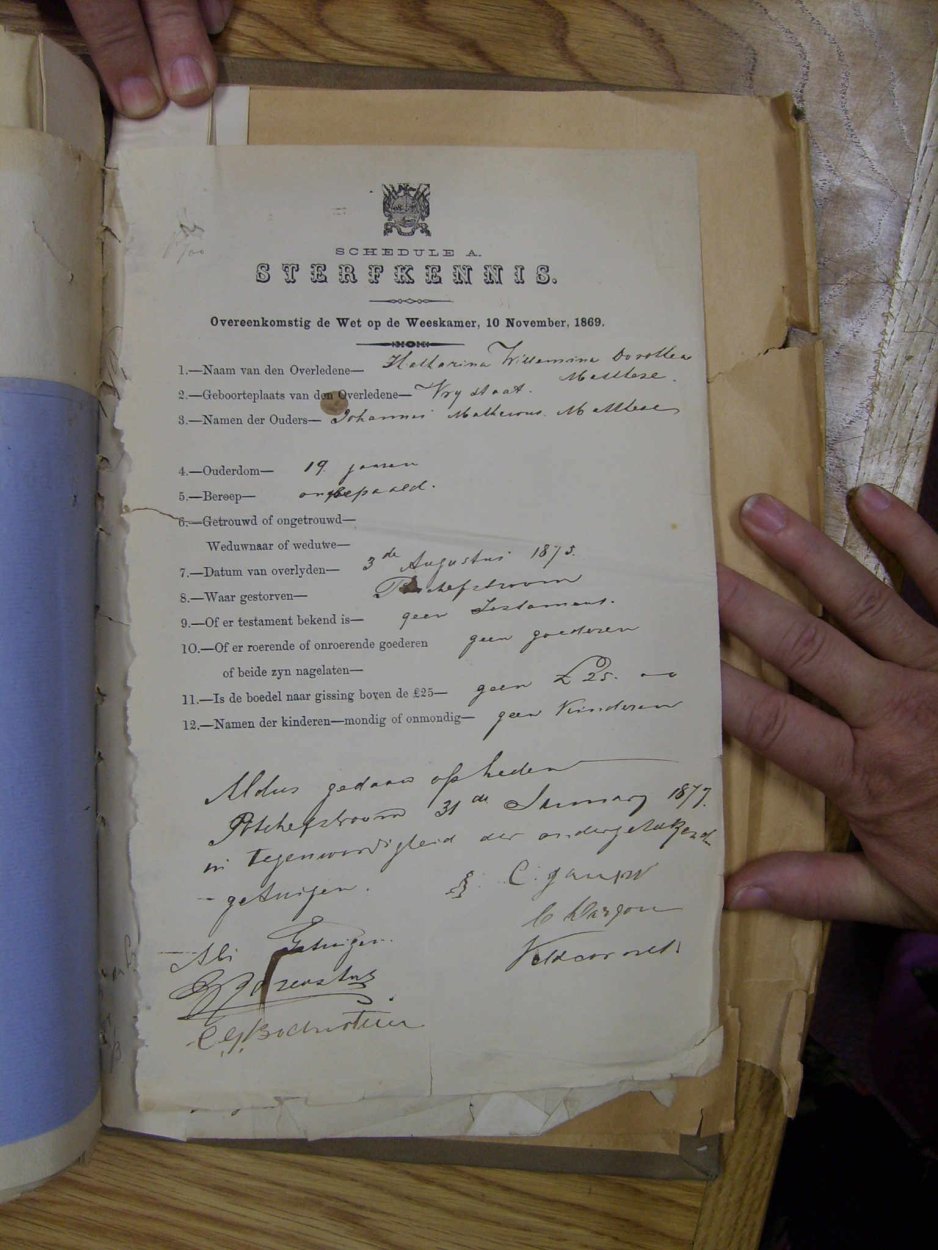 SCHEDULE A.
STERFKENNIS.
Overeenkomstig de Wet op de Weeskamer, 10 November, 1869.
1.—Naam van den Overledene— Katharina Willemina Dorothea
2.—Geboorteplaats van den Overledene— Vrystaat.
3.—Namen der Ouders— Johannes
4.—Ouderdom— 19 jaaren
5.—Beroep— onbepaald.
6.—Getrouwd of ongetrouwd—
Weduwnaar of weduwe—
7.—Datum van overlyden— 3de Augustus 1875.
8.—Waar gestorven— Potchefstroom
9.—Of er testament bekend is— geen Testament.
10.—Of er roerende of onroerende goederen geen goederen
of beide zyn nagelaten—
11.—Is de boedel naar gissing boven de £25— geen £25.
12.—Namen der kinderen—mondig of onmondig— geen Kinderen
Aldus gedaan op heden
Potchefstroom 31de January 1877.
in tegenwoordigheid der ondergetekende
getuigen.
Als Getuigen
Veldcornet.